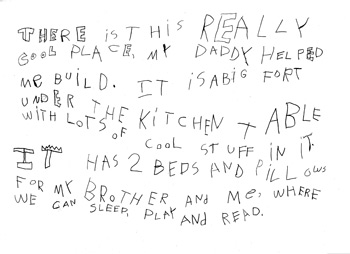 THERE IS THIS REALLY
COOL PLACE, MY DADDY HELPED
me BUILD. IT ISABIG FORT
UNDER THE KITCHEN TABLE
WITH LOTS OF COOL STUFF IN IT.
IT HAS 2 BEDS AND PILLOWS
FOR MY BROTHER AND Me, WHERE
WE CAN SLEEP, PLAY AND READ.